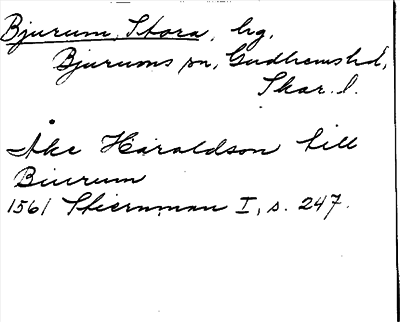 Bjurum, Stora, hg,
Bjurums sn, Gudhems hd,
Skar. l.
Åke Haraldson till
Biurum
1561 Stiernman I, s. 247.